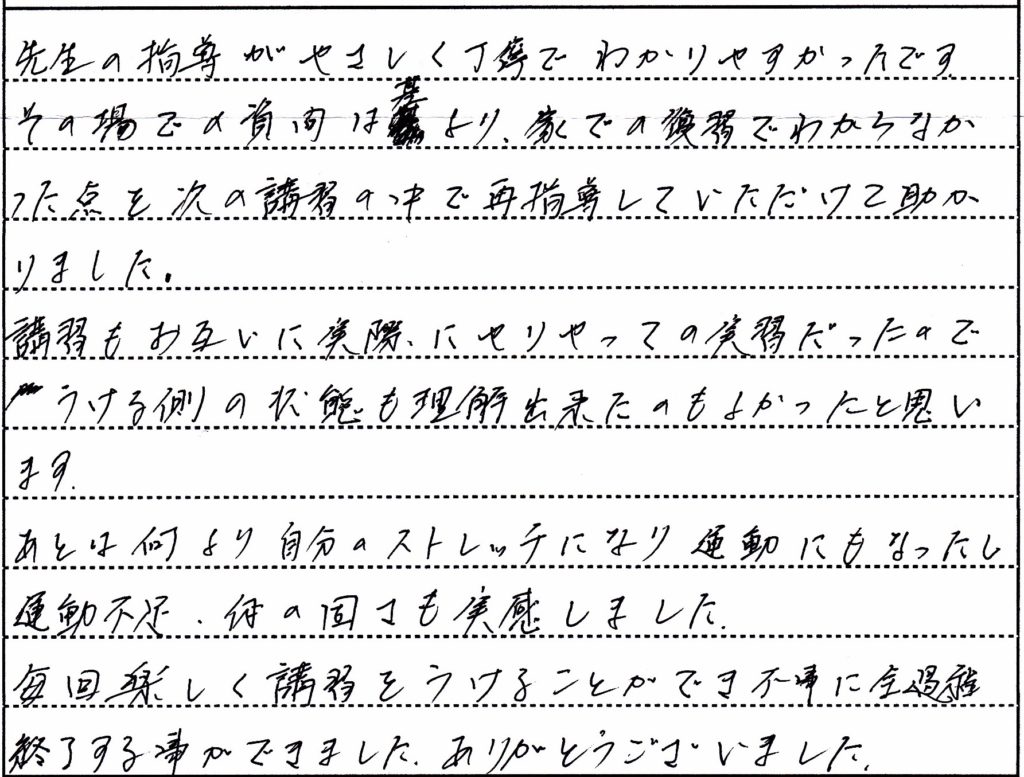 先生の指導がやさしく丁寧でわかりやすかったです
その場での質問は基より、家での復習でわからなか
った点を次の講習の中で再指導していただけて助か
りました。
講習もお互いに実際にやりやっての実習だったので
うける側の状態も理解出来たのもよかったと思い
ます。
あとは何より自分のストレッチになり運動にもなったし
運動不足、体の固さも実感しました。
毎回楽しく講習をうけることができ不事に全過程
終了する事ができました。ありがとうございました。